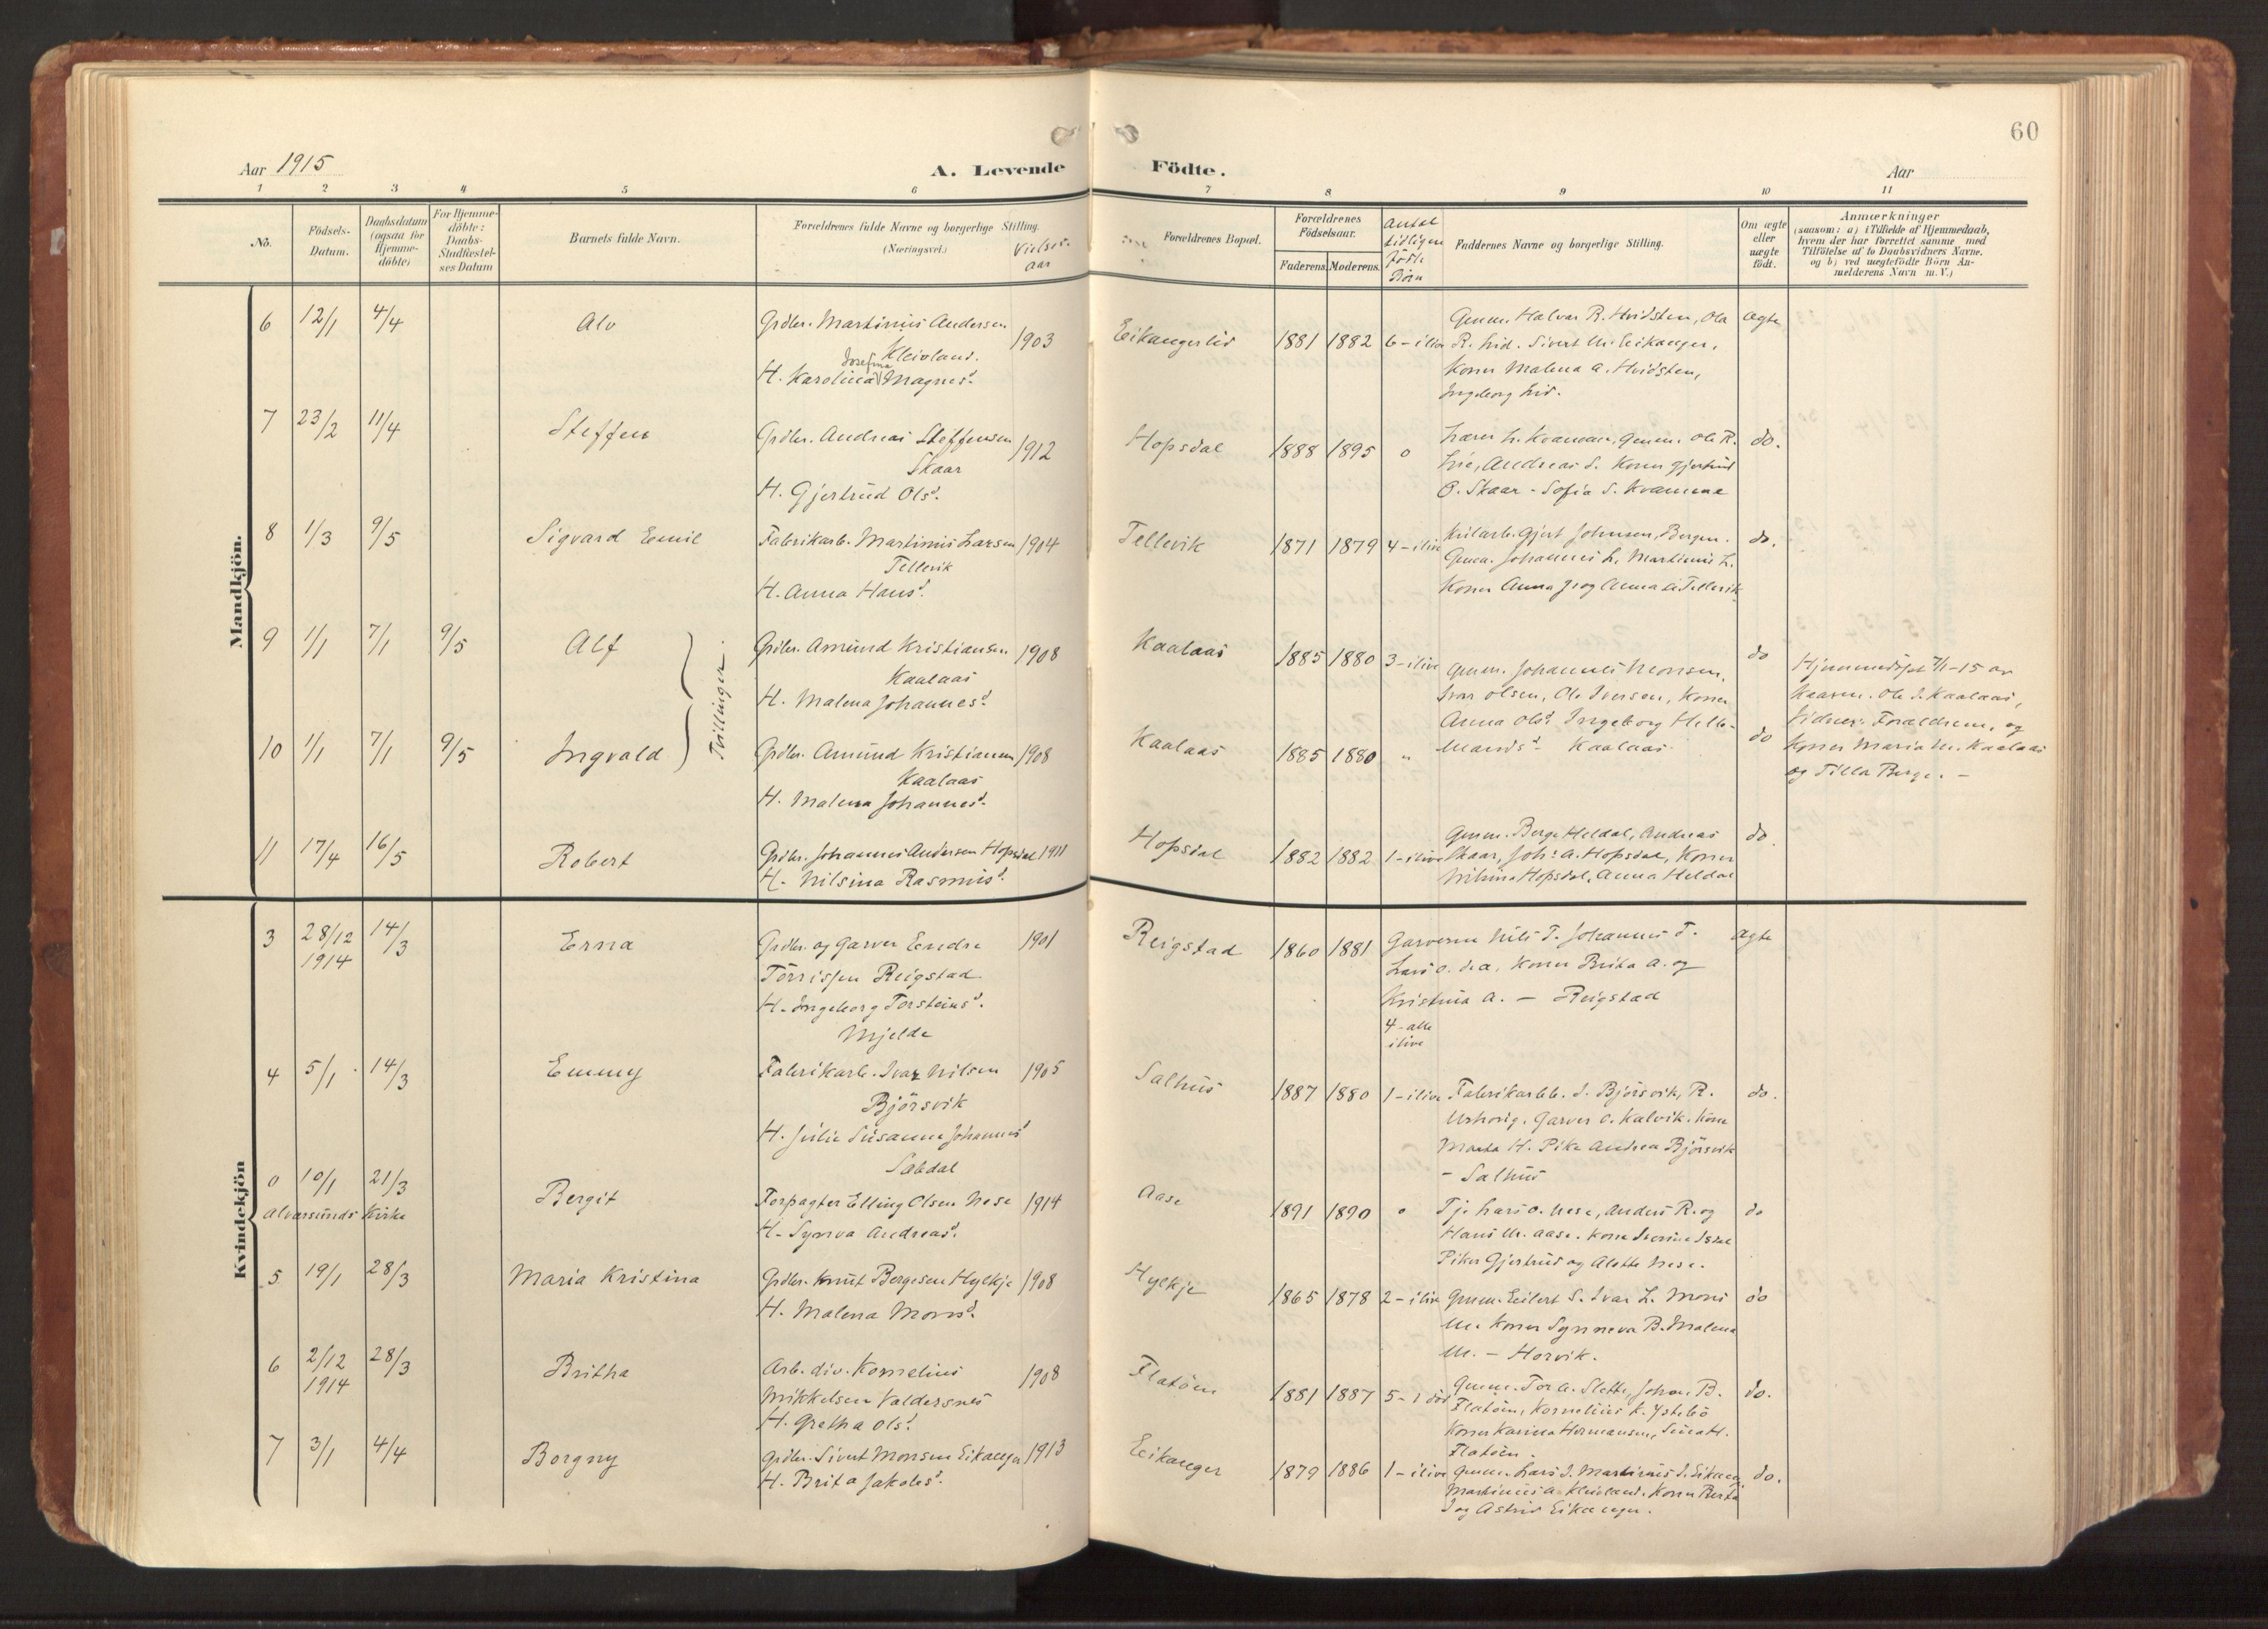 60
Aar 1915
A. Levende Födte.
Aar
1 2 3 4 5 6 7 8 9 10 11
No.
Födsels-
Datum.
Daabsdatum
(ogsaa for
Hjemme-
döbte)
For Hjemme-
döbte:
Daabs-
Stadfæstel-
ses Datum
Barnets fulde Navn.
Forældrenes fulde Navne og borgerlige Stilling.
(Næringsvei.)
Vielses-
aar
Forældrenes Bopæl.
Forældrenes
Födselsaar.
Faderens. Moderens.
Antal
tidligere
födte
Börn
Faddernes Navne og borgerlige Stilling.
Om ægte
eller
uægte
födt.
Anmærkninger
(saasom: a) i Tilfælde af Hjemmedaab,
hvem der har forrettet samme med
Tilföielse af to Daabsvidners Navne.
og b) ved uægtefödte Börn An-
melderens Navn m. V.)
Mandkjön.
6 12/1 4/4 Alv
Grdbr. Martinius Andersen 1903
Kleivland.
Josefina
H. Karolina Magnesd.
Eikangerlid 1881 1882 6 - ilive
Gmm. Halvar R. Hvidsten, Ola
R. Lid. Sivert M. Eikanger,
Koner Malena A. Hvidsten,
Ingeborg Lid.
ægte
7 23/2 11/4 Steffen
Grdbr. Andreas Steffensen 1912
Skaar
H. Gjertrud Olsd.
Hopsdal 1888 1895 0
Lærer L. Kvamme, Gmm. Ole R.
Lie, Andreas S. Koner Gjertrud
O. Skaar - Sofia S. Kvamme
do.
8 1/3 9/5 Sigvard Emil
Fabrikarb. Martinus Larsen 1904
Tellevik
H. Anna Hansd.
Tellevik 1871 1879 4 - ilive
Gjert Johnsen, Bergen.
Gmm. Johannes L. Martinus L.
Koner Anna J. og Anna L. Tellevik
do.
9 1/1 7/1 9/5 Alf
Tvillinger
Grdbr. Amund Kristiansen 1908
Kaalaas
H. Malena Johannesd.
Kaalaas 1885 1880 3 - ilive
Gmm. Johannes Monsen,
Ivar Olsen, Ole Iversen, Koner
Anna Olsd. Ingeborg Helle-
Kaalaas
do
Hjemmedöpt 7/1-15 av
Ole J. Kaalaas,
Vidner: Foraldrene, og
Koner Maria M. Kaalaas
og Tilla Berge. -
10 1/1 7/1 9/5 Ingvald
Grdbr. Amund Kristiansen 1908
Kaalaas
H. Malena Johannesd.
Kaalaas 1885 1880 "
do
11 17/4 16/5 Robert
Grdbr. Johannes Andersen Hopsdal 1911
H. Nilsina Rasmusd.
Hopsdal 1882 1882 1 - ilive
Gmm. Berge Heldal, Andreas
Skaar, Johs. A. Hopsdal, Koner
Nilsina Hopsdal, Anna Heldal
do.
Kvindekjön
3 28/12 14/3 Erna
1914
Grdbr. og Garver Endre 1901
Torrissen Reigstad
H. Ingeborg Torsteinsd.
Mjelde
Reigstad 1860 1881
Garverne Nils T. Johannes T.
Lars O. Koner Brita A. og
Kristina A. - Reigstad
4 - alle
ilive
ægte
4 5/1 14/3 Emmy
Fabrikarb. Ivar Nilsen 1905
Björsvik
H. Julie Susanne Johannesd.
Sabdal
Salhus 1887 1880 1 - ilive
Fabrikarbb. I. Björsvik, R.
Garver O. Kalvik. Kone
Marta H. Pike Andrea Björsvik
- Salhus
do.
0 10/1 21/3 Bergit
Alversunds Kirke
Forpagter Elling Olsen Nese 1914
H. Synva Andreasd.
Aase 1891 1890 0
Tj. Lars O. Nese, Anders R. og
Hans M. Aase. Kone
Piker Gjertrud og Alette Nese.
do
5 19/1 28/3 Maria Kristina
Grdbr. Knut Bergesen Hylkje 1908
H. Malena Monsd.
Hylkje 1865 1878 2 - ilive
Gmm. Eilert S. Ivar L. Mons
M. Koner Synneva B. Malena
M. - Horvik.
do
6 2/12 28/3 Britha
1914
Arb. div. Kornelius 1908
Mikkelsen Valdersnes
H. Gretha Olsd.
Flatöen 1881 1887 5 - 1 död
Gmm. Tor A. Slette, Johan B.
Flatöen, Kornelius K. Ystebö
Koner Karina Hermansen,
Flatöen.
do.
7 3/1 4/4 Borgny
Grdbr. Sivert Monsen Eikanger 1913
H. Brita Jakobsd.
Eikanger 1879 1886 1 - ilive
Gmm. Lars I. Martinus I. Eikanger
Martinius A. Kleivland. Koner Berta
I. og Astrid Eikanger.
do.